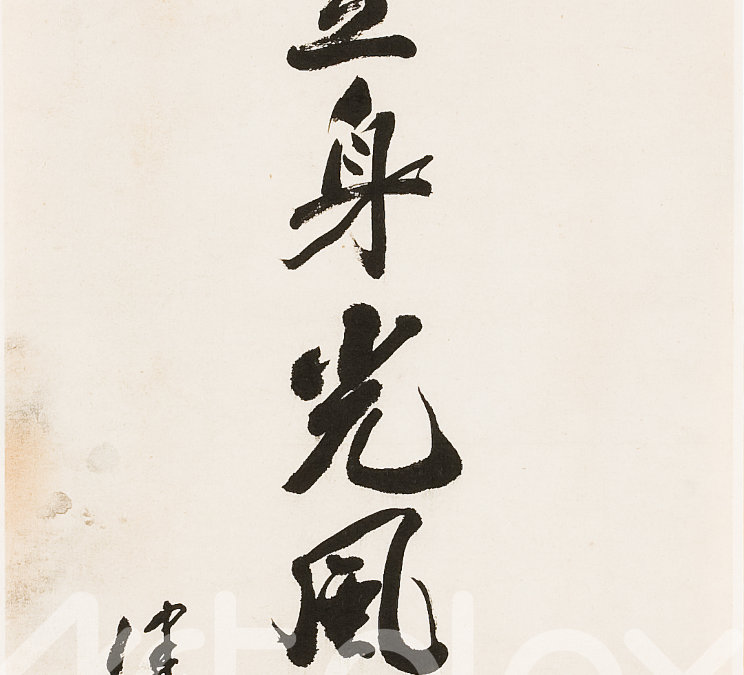 立身光風